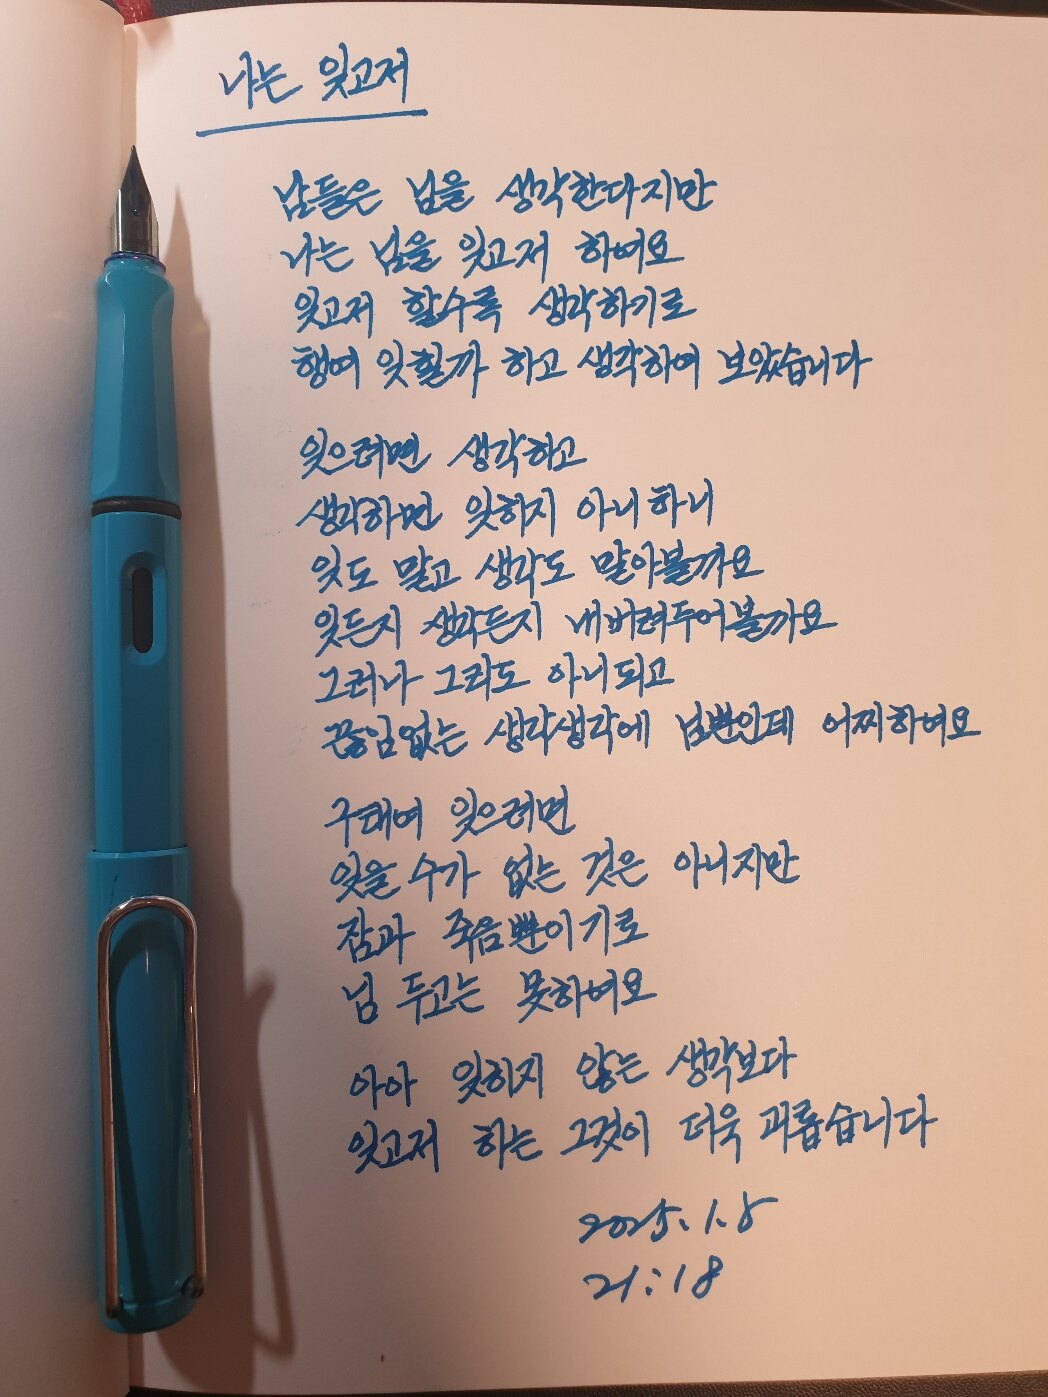 나는 잊고저
남들은 님을 생각한다지만
나는 님을 잊고저 하여요
잊고저 할수록 생각하기로
행여 잊힐까 하고 생각하여 보았습니다
잊으려면 생각하고
생각하면 잊히지 아니하니
잊도 말고 생각도 말아볼까요
잊든지 생각든지 내버려두어볼까요
그러나 그리도 아니되고
끊임없는 생각생각에 님뿐인데 어찌하여요
구태여 잊으려면
잊을 수가 없는 것은 아니지만
잠과 죽음뿐이기로
님 두고는 못하여요
아아 잊히지 않는 생각보다
잊고저 하는 그것이 더욱 괴롭습니다
2025.1.5
21:18